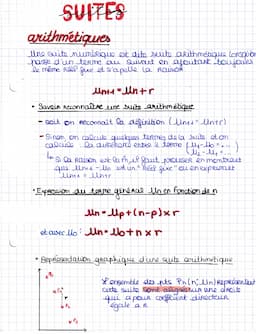 SUITES
arithmétiques
Une suite numérique est dite suite arithmétique lorsqu'on
passe d'un terme au suivant en ajoutant toujours
le même réel fixe et s'appelle la raison
Un+1 = Un + r
• Savoir reconnaître une suite arithmétique
- soit on reconnaît la définition (Un+1 = Un+r)
- Sinon, on calcule quelques termes de la suite et on
calcule la différence entre le terme (U1-U0 = ...)
(U2-U1 = ...)
↳ Si la raison est la m, il faut prouver en montrant
que Un+1 - Un est un "Réel fixe" ou en exprimant
Un+1 = Un+r
• Expression du terme général Un en fonction de n
Un = Up + (n-p) × r
et avec U0 : Un = U0 + n × r
• Représentation graphique d'une suite arithmétique
L'ensemble des pts Pn (n; Un) représentent
cette suite sont alignés sur une droite
qui a pour coefficient directeur
égale à r.